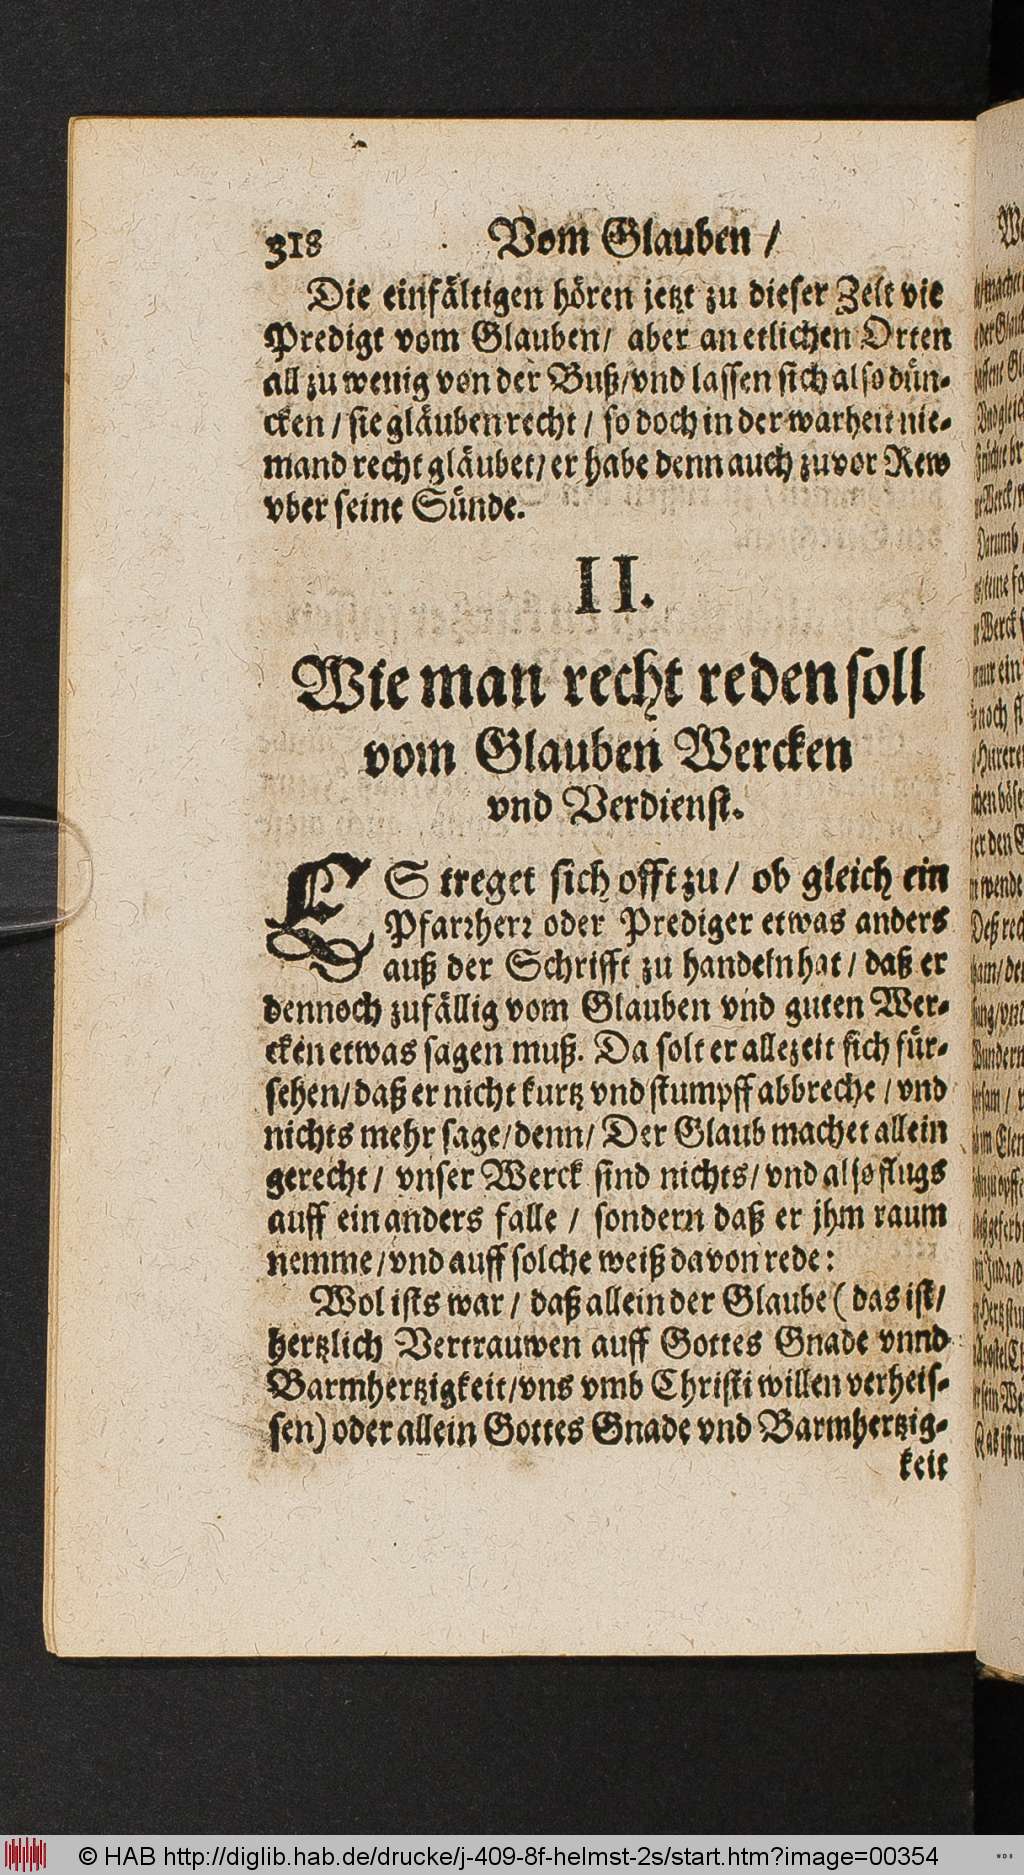 318 Vom Glauben /
Die einfältigen hören jetzt zu dieser Zeit vie
Predigt vom Glauben/ aber an etlichen Orten
all zu wenig von der Buß/ vnd lassen sich also dün-
cken / sie gläuben recht / so doch in der warheit nie-
mand recht gläubet/ er habe denn auch zuvor Rew
vber seine Sünde.
II.
Wie man recht reden soll
vom Glauben Wercken
vnd Verdienst.
ES treget sich offt zu / ob gleich ein
Pfarrherr oder Prediger etwas anders
auß der Schrifft zu handeln hat / daß er
dennoch zufällig vom Glauben vnd guten Wer-
cken etwas sagen muß. Da solt er allezeit sich für-
sehen/ daß er nicht kurtz vnd stumpff abbreche / vnd
nichts mehr sage/ denn/ Der Glaub machet allein
gerecht / vnser Werck sind nichts/ vnd also flugs
auff ein anders falle / sondern daß er jhm raum
nemme/ vnd auff solche weiß davon rede:
Wol ists war / daß allein der Glaube ( das ist/
hertzlich Vertrauwen auff Gottes Gnade vnnd
Barmhertzigkeit/ vns vmb Christi willen verheis-
sen) oder allein Gottes Gnade vnd Barmhertzig-
keit
© HAB http://diglib.hab.de/drucke/j-409-8f-helmst-2s/start.htm?image=00354